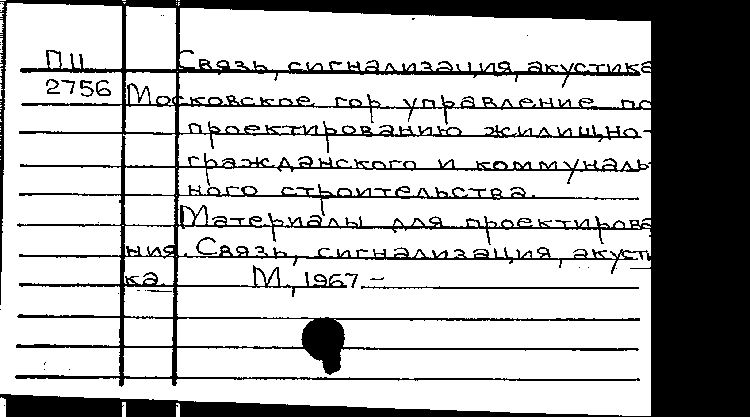 П.11 Связь, сигнализация, акустика
2756 Московское гор управление по
проектированию жилищно-
гражданского и коммуналь
ного строительства.
Материалы для проектирова
ния. Связь, сигнализация, акусти
ка. М., 1967.-